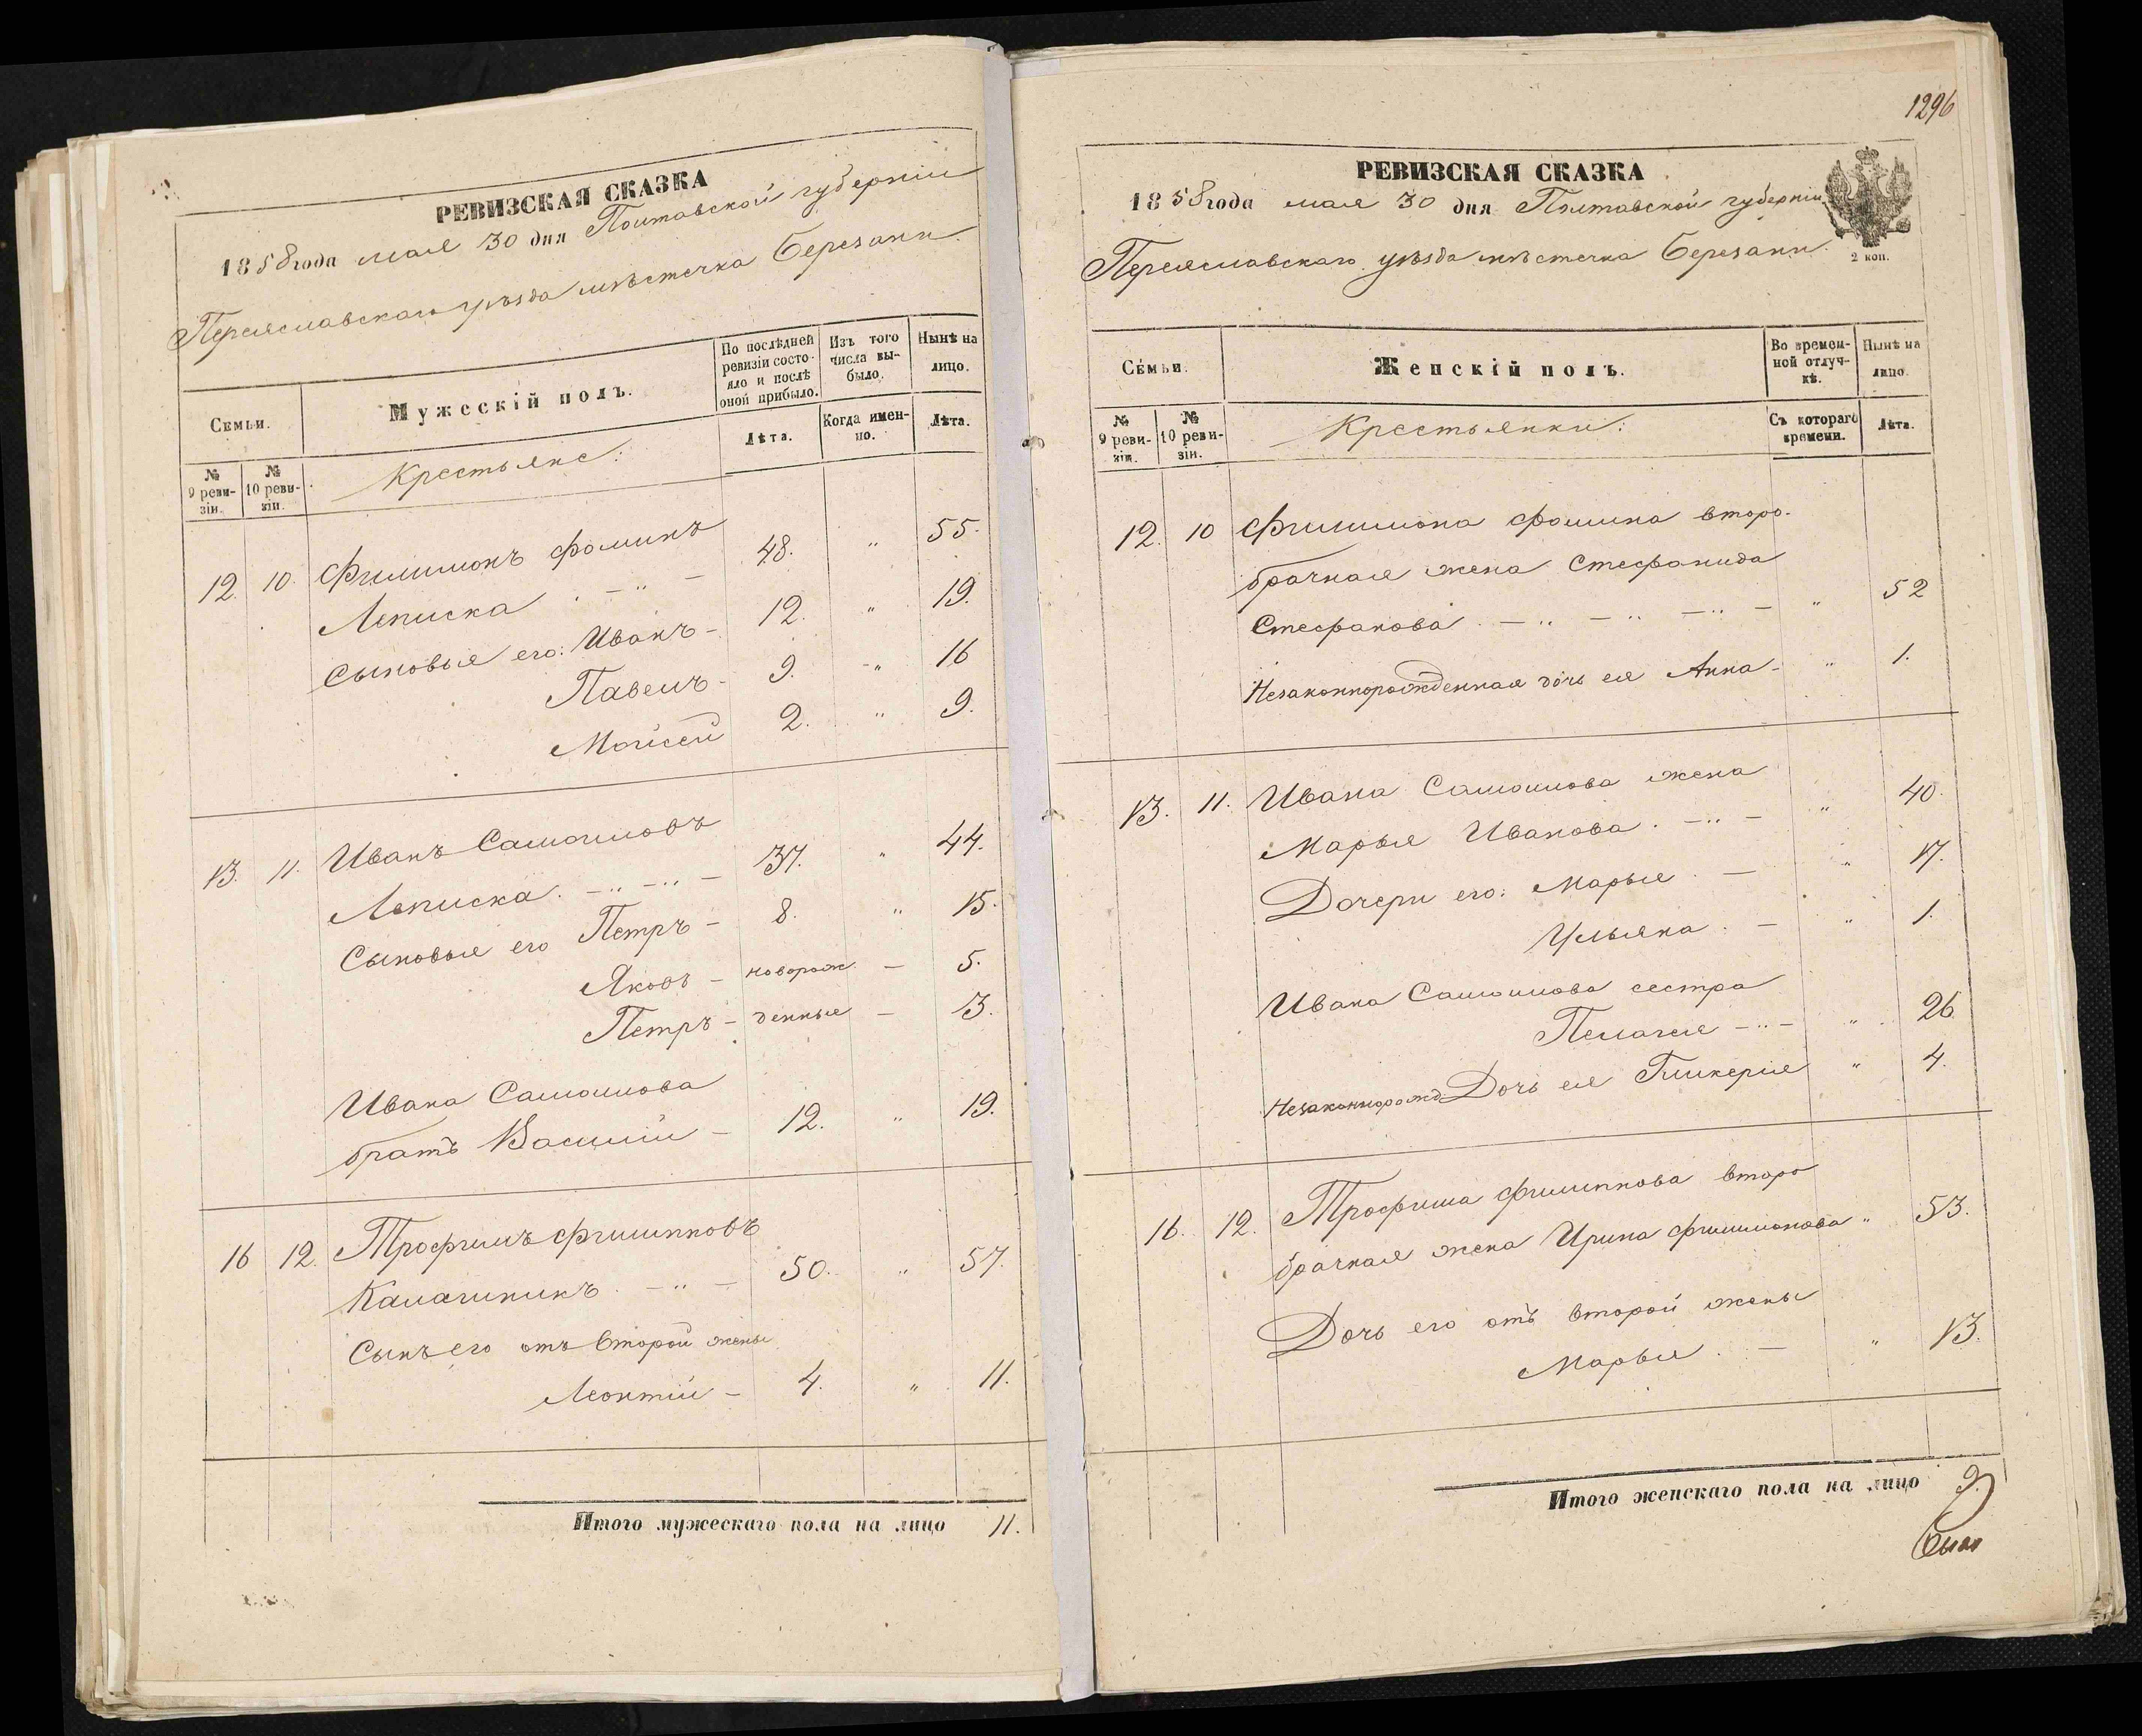 РЕВИЗСКАЯ СКАЗКА
1858 года мая 30 дня Полтавской губерніи
Переяславскаго уѣзда мѣстечка Березани.
Семьи.
Мужескій полъ.
По послѣдней ревизіи состояло и послѣ оной прибыло.
Изъ того числа выбыло.
Нынѣ на лицо.
№ 9 ревизіи.
№ 10 ревизіи.
Крестьяне:
Лѣта.
Когда именно.
Лѣта.
12. 10. Филимонъ Фоминъ
Леписка . — " — 48. " 55.
Сыновья его: Иванъ — 12. " 19.
Павелъ — 9. — " 16
Мойсей 2. " 9.
13. 11. Иванъ Самоиловъ
Леписка . — " — " — 37. " 44.
Сыновья его Петръ — 8. " 15.
Яковъ — новорож — 5.
Петръ — денные — 3.
Ивана Самоилова
братъ Василій — 12. " 19.
16 12. Трофимъ Филиповъ
Калачникъ . — " — 50. " 57.
Сынъ его отъ второй жены
Леонтій — 4. " 11.
Итого мужескаго пола на лицо 11.
1296
РЕВИЗСКАЯ СКАЗКА
1858 года мая 30 дня Полтавской губерніи
Переяславскаго уѣзда мѣстечка Березани.
2 коп.
Семьи.
Женскій полъ.
Во временной отлучкѣ.
Нынѣ на лицо.
№ 9 ревизіи.
№ 10 ревизіи.
Крестьянки:
Съ котораго времени.
Лѣта.
12. 10 Филимона Фомина второ-
брачная жена Стефанида
Стефанова . — " — " — " — " 52
Незаконнорожденная дочь ея Анна — " 1.
13. 11. Ивана Самоилова жена
Марья Иванова . — " — " 40.
Дочери его: Марья . — " 17.
Ульяна . — " 1.
Ивана Самоилова сестра
Пелагея — " — " 26
Незаконнорожд. Дочь ея Гликерія " 4.
16. 12. Трофима Филипова второ
брачная жена Ирина Филимонова " 53.
Дочь его отъ второй жены
Марья . — " 13.
Итого женскаго пола на лицо 9.